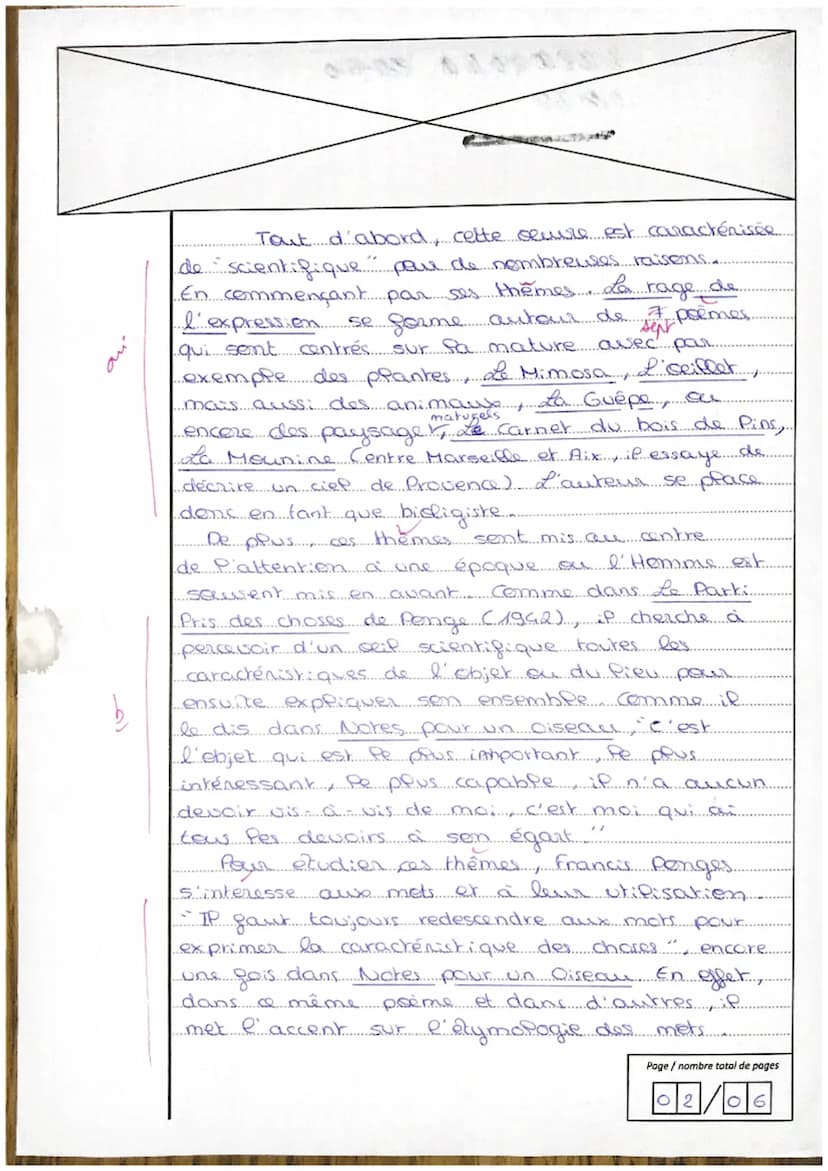 Tout d'abord, cette oeuvre est caractérisée
de "scientifique" par de nombreuses raisons.
En commençant par ses thèmes. La rage de
l'expression se forme autour de 7 poèmes
sept
qui sont centrés sur la nature avec par
oui
exemple des plantes, Le Mimosa, L'oeillet,
mais aussi des animaux, La Guêpe, ou
naturels
encore des paysages, Le Carnet du bois de Pins,
La Mounine (entre Marseille et Aix, il essaye de
décrire un ciel de Provence). L'auteur se place
donc en tant que bioligiste.
De plus, ces thèmes sont mis au centre
de l'attention à une époque ou l'Homme est
souvent mis en avant. Comme dans Le Parti
Pris des choses de Ponge (1942), il cherche à
percevoir d'un oeil scientifique toutes les
caractéristiques de l'objet ou du lieu pour
ensuite expliquer son ensemble. Comme il
b
le dis dans Notes pour un oiseau, "C'est
l'objet qui est le plus important, le plus
intéressant, le plus capable, il n'a aucun
devoir vis-à-vis de moi, c'est moi qui ai
tous les devoirs à son égart."
Pour étudier ces thèmes, Francis Ponges
s'intéresse aux mots et à leur utilisation.
"Il faut toujours redescendre aux mots pour
exprimer la caractéristique des choses", encore
une fois dans Notes pour un Oiseau. En effet,
dans ce même poème et dans d'autres, il
met l'accent sur l'étymologie des mots.
Page / nombre total de pages
02/06